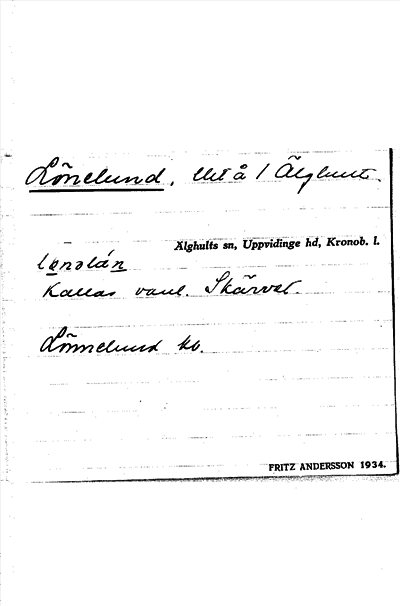 Lönelund, Uet å 1 Älghult.
Älghults sn, Uppvidinge hd, Kronob. l.
Kallas vanl. Skärvet.
Lönnelund kb.
FRITZ ANDERSSON 1934.